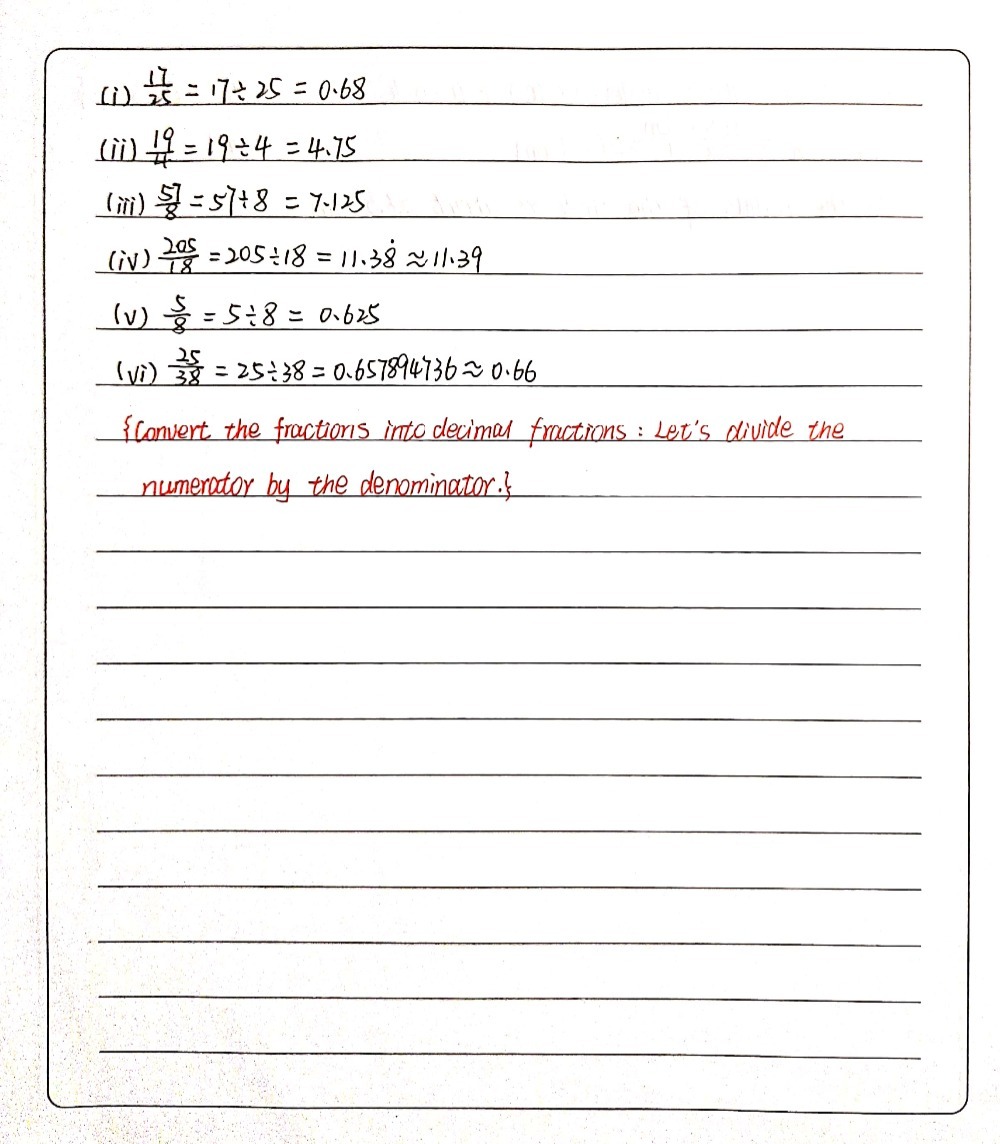 (i) 17/25 = 17 ÷ 25 = 0.68
(ii) 19/4 = 19 ÷ 4 = 4.75
(iii) 57/8 = 57 ÷ 8 = 7.125
(iv) 205/18 = 205 ÷ 18 = 11.38̇ ≈ 11.39
(v) 5/8 = 5 ÷ 8 = 0.625
(vi) 25/38 = 25 ÷ 38 = 0.657894736 ≈ 0.66
{Convert the fractions into decimal fractions : Let's divide the
numerator by the denominator.}